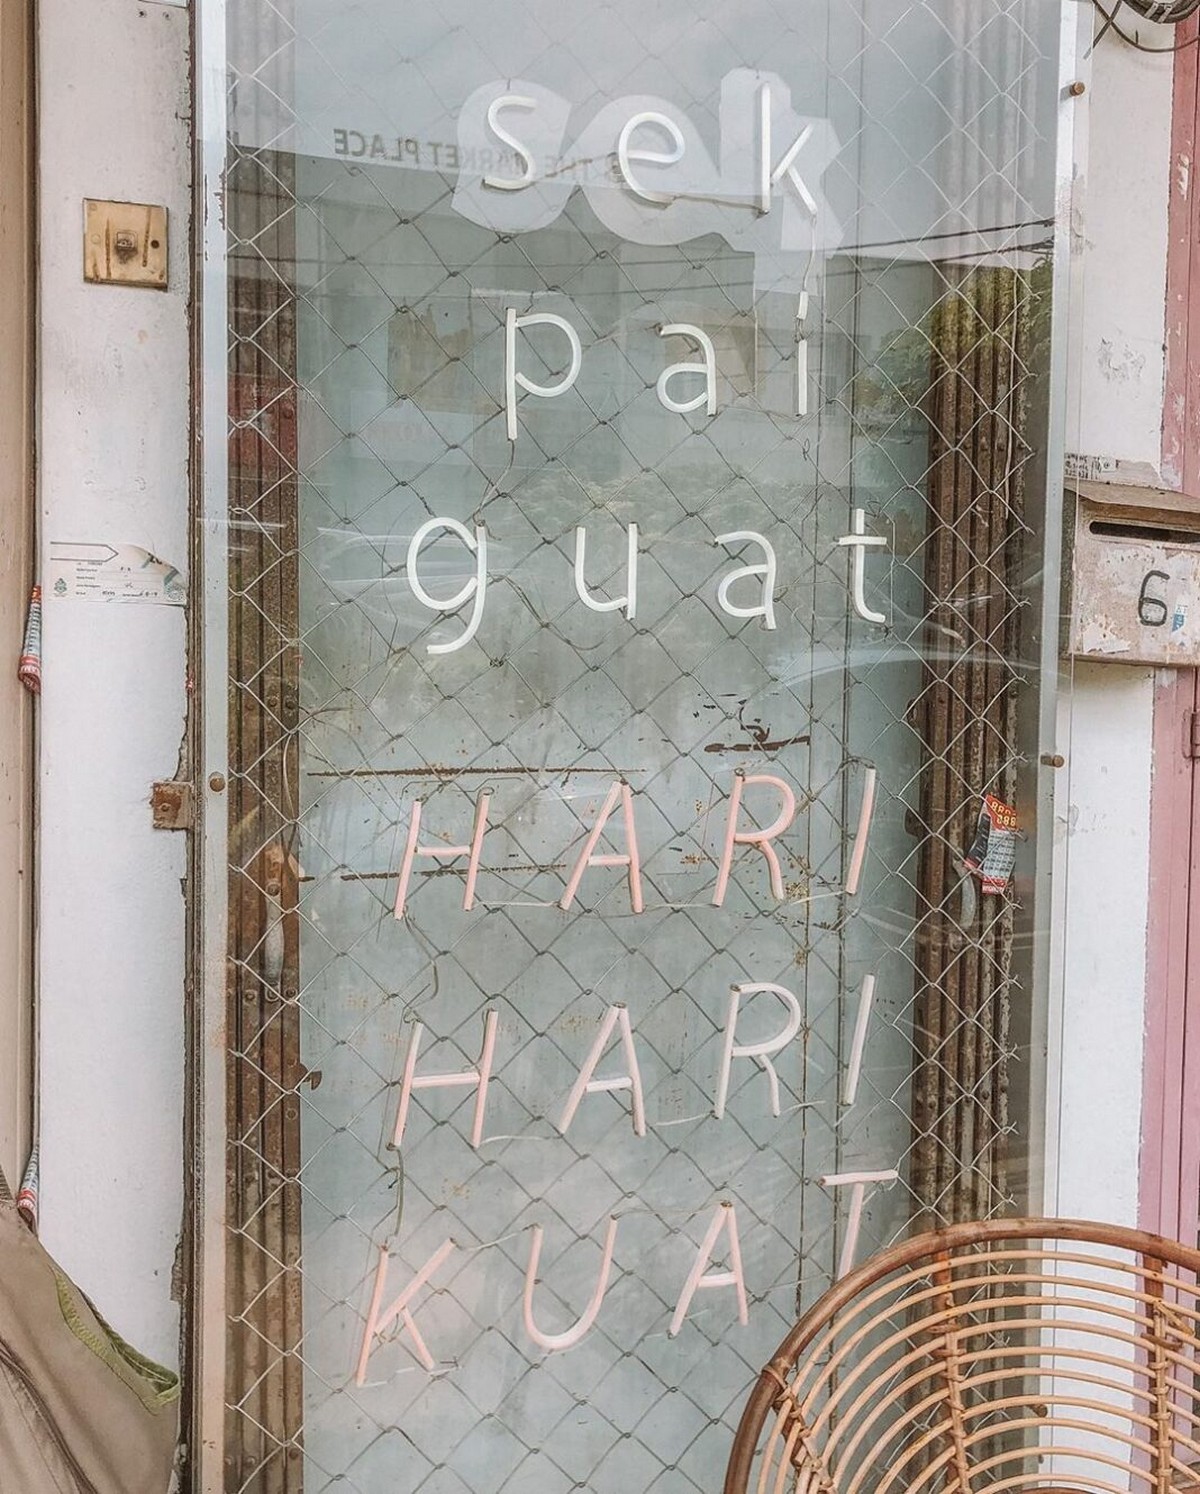 sek
THE MARKET PLACE
sek
pai
guat
HARI
HARI
KUAT
6